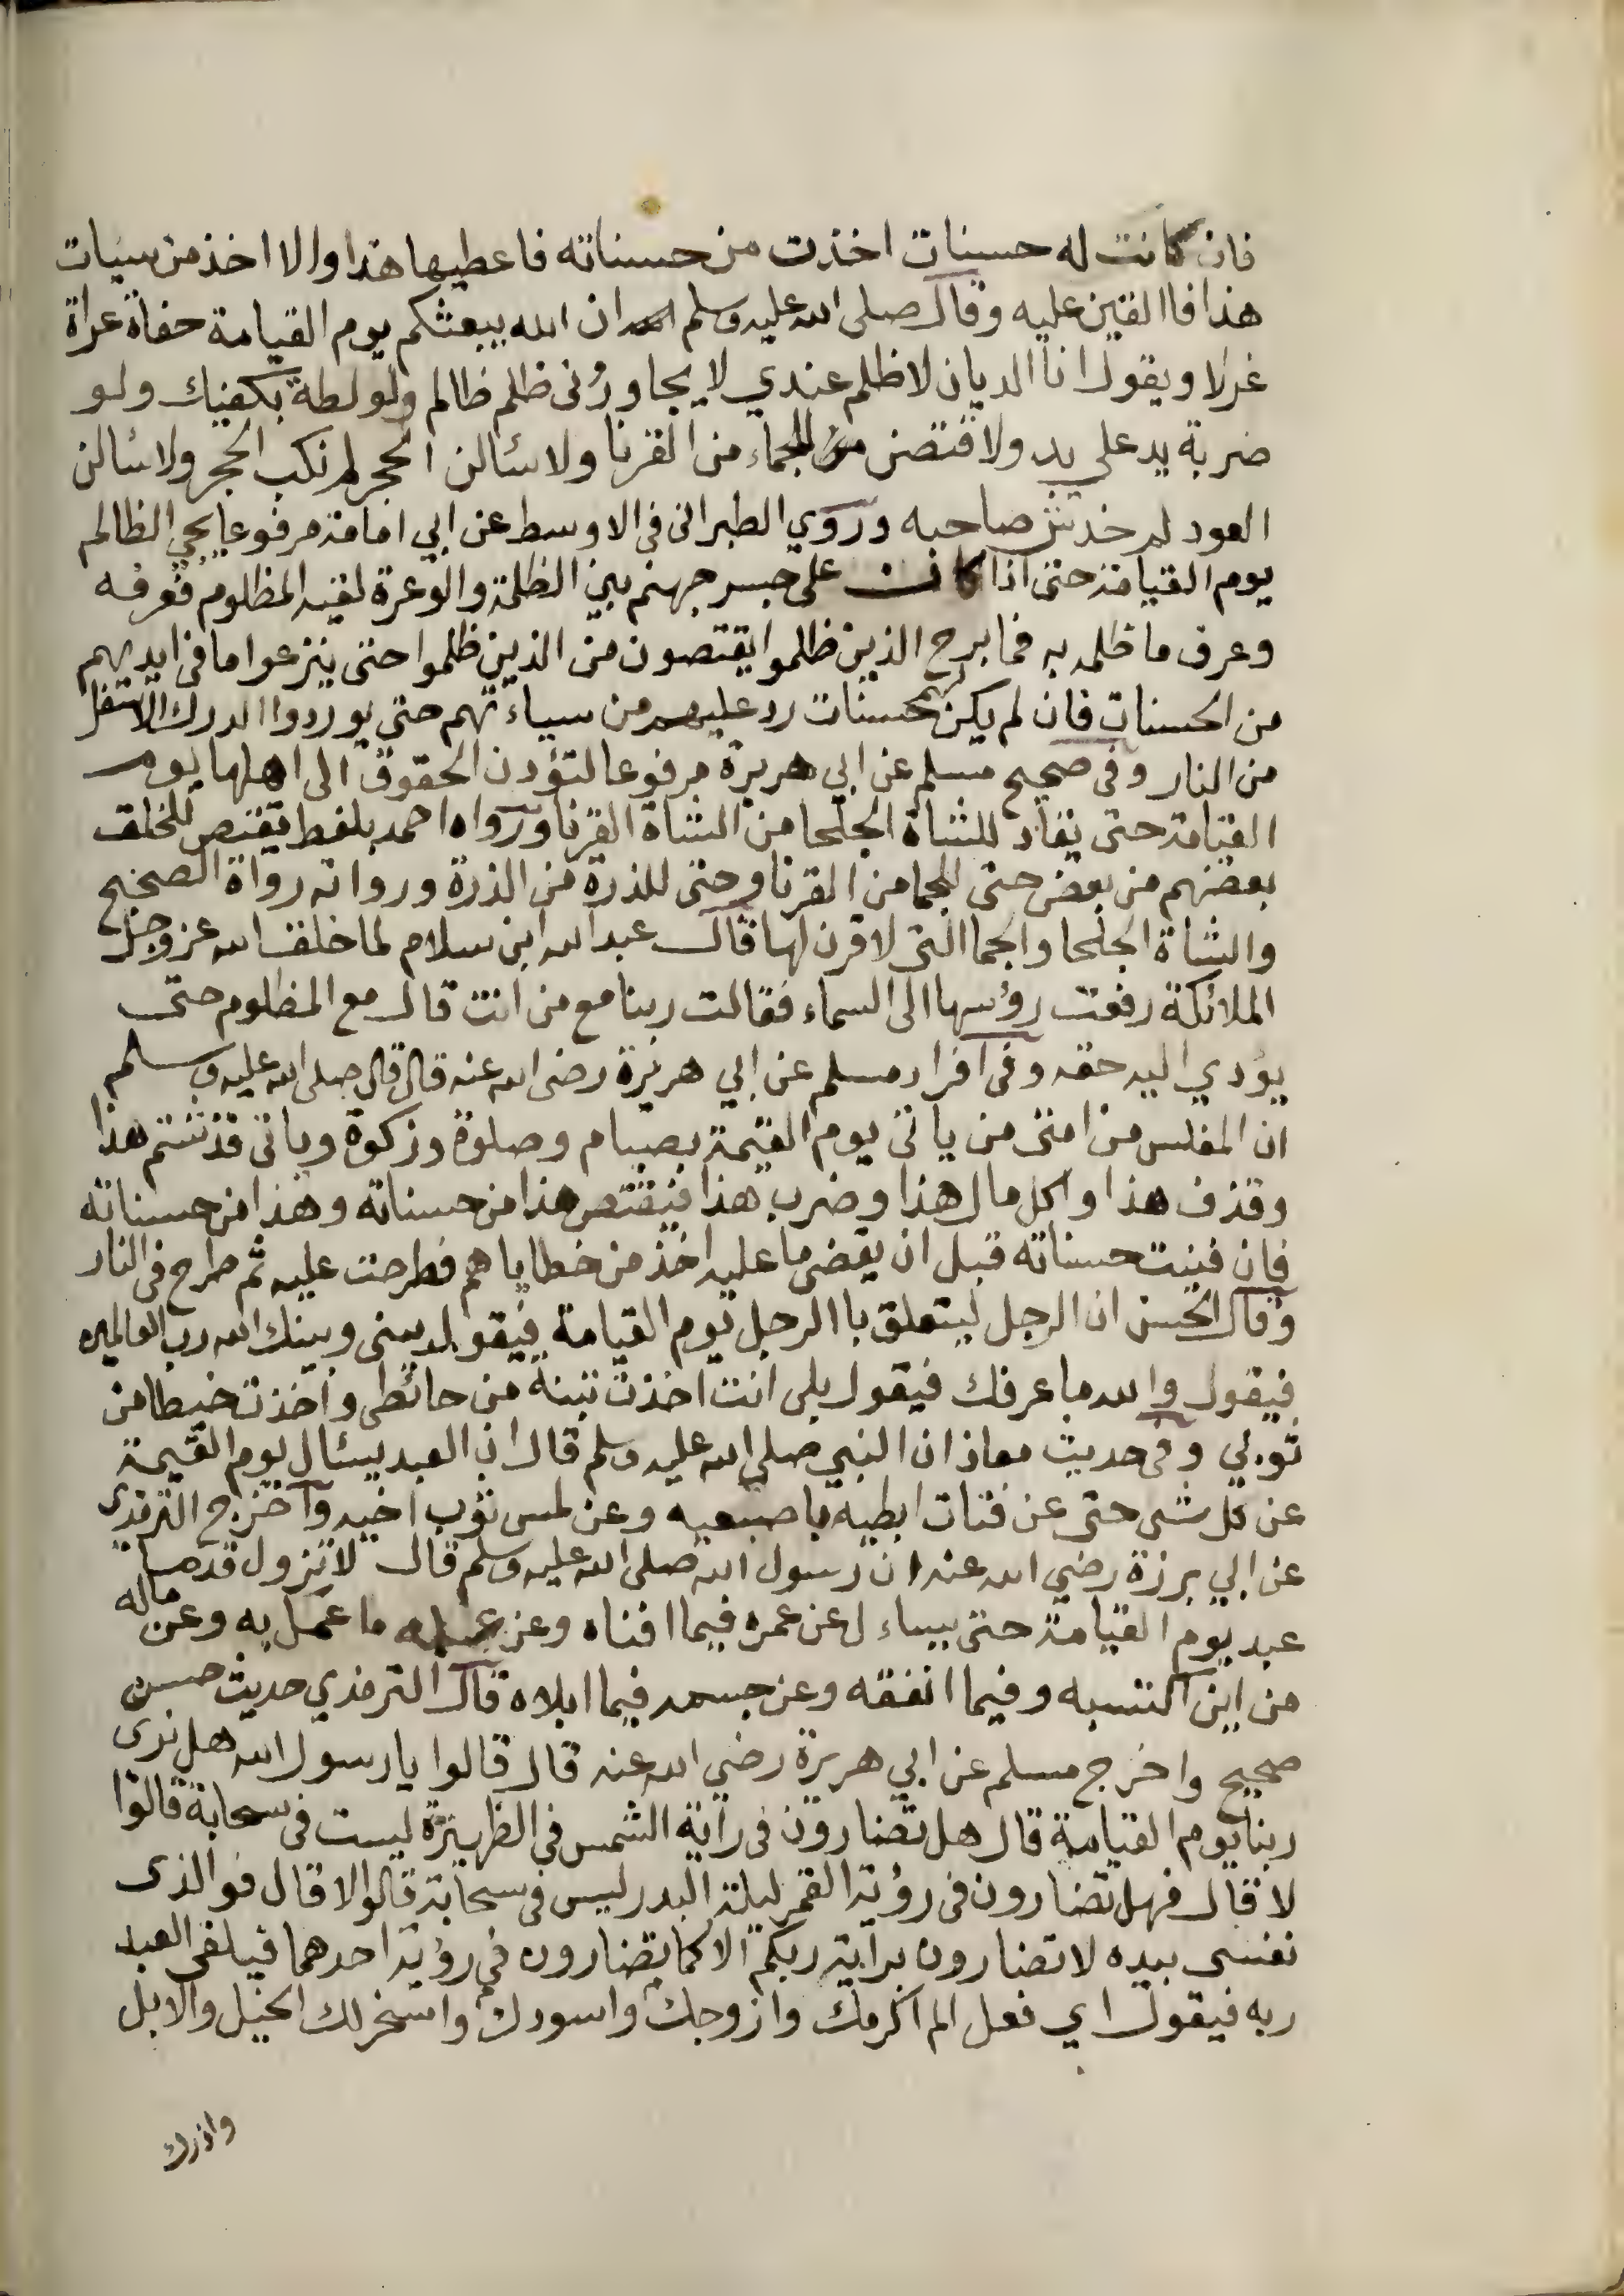 فان كانت له حسنات اخذت من حسناته فاعطيها هذا والا اخذ من سيات
هذا فاالقين عليه وقال صلى الله عليه وسلم ان الله يبعثكم يوم القيامة حفاة عراة
غرلا ويقول انا الديان لا ظلم عندي لا يجاوزنى ظلم ظالم ولو لطة بكفيك ولو
ضربة يد على يد ولاقتصن للجماء من القرنا ولاسئالن الحجر لم نكب الحجر ولاسئالن
العود لم خدش صاحبه وروي الطبرانى فى الاوسط عن ابي امامة مرفوعا يجي الظالم
يوم القيامة حتى اذا كانت على جسر جهنم بين الظلمة والوعرة لقيه المظلوم فعرفه
وعرف ما ظلمه به فما برح الذين ظلموا يقتصون من الذين ظلموا حتى ينزعوا ما فى ايديهم
من الحسنات فان لم يكن لهم حسنات رد عليهم من سياءتهم حتى يوردوا الدرك الاسفل
من النار وفى صحيح مسلم عن ابي هريرة مرفوعا لتؤدن الحقوق الى اهلها يوم
القيامة حتى يقاد للشاة الجلحا من الشاة القرنا ورواه احمد بلفظ يقتص للخلق
بعضهم من بعض حتى للجما من القرنا وحتى للذرة من الذرة ورواته رواة الصحيح
والشاة الجلحا والجما التى لا قرن لها قال عبد الله ابن سلام لما خلق الله عز وجل
الملائكة رفعت رؤسها الى السماء فقالت ربنا مع من انت قال مع المظلوم حتى
يؤدي اليه حقه وفى افراد مسلم عن ابي هريرة رضى الله عنه قال قال صلى الله عليه وسلم
ان المفلس من امتى من ياتى يوم القيمة بصيام وصلوة وزكوة وياتى قد شتم هذا
وقذف هذا واكل مال هذا وضرب هذا فيقتص هذا من حسناته وهذا من حسناته
فان فنيت حسناته قبل ان يقضى ما عليه اخذ من خطاياهم فطرحت عليه ثم طرح فى النار
وقال الحسن ان الرجل ليتعلق باالرجل يوم القيامة فيقول بينى وبينك الله رب العالمين
فيقول والله ما عرفك فيقول بلى انت اخذت تبنة من حائطى واخذت خيطا من
ثوبي وفى حديث معاذ ان النبي صلى الله عليه وسلم قال ان العبد يسئال يوم القيمة
عن كل شى حتى عن فتات ابطيه باصبعيه وعن لمس ثوب اخيه واخرج الترمذى
عن ابي برزة رضي الله عنه ان رسول الله صلى الله عليه وسلم قال لا تزول قدما
عبد يوم القيامة حتى يساءل عن عمره فيما افناه وعن عمله ما عمل به وعن ماله
من اين اكتسبه وفيما انفقه وعن جسمه فيما ابلاه قال الترمذي حديث حسن
صحيح واخرج مسلم عن ابي هريرة رضي الله عنه قال قالوا يا رسول الله هل نرى
ربنا يوم القيامة قال هل تضارون فى راية الشمس في الظهيرة ليست فى سحابة قالوا
لا قال فهل تضارون فى رؤية القمر ليلة البدر ليس فى سحابة قالوا لا قال فوالذى
نفسى بيده لا تضارون براية ربكم الا كما تضارون في رؤية احدهما فيلقى العبد
ربه فيقول اي فعل الم اكرمك وازوجك واسودك واسخر لك الخيل والابل
واذرك